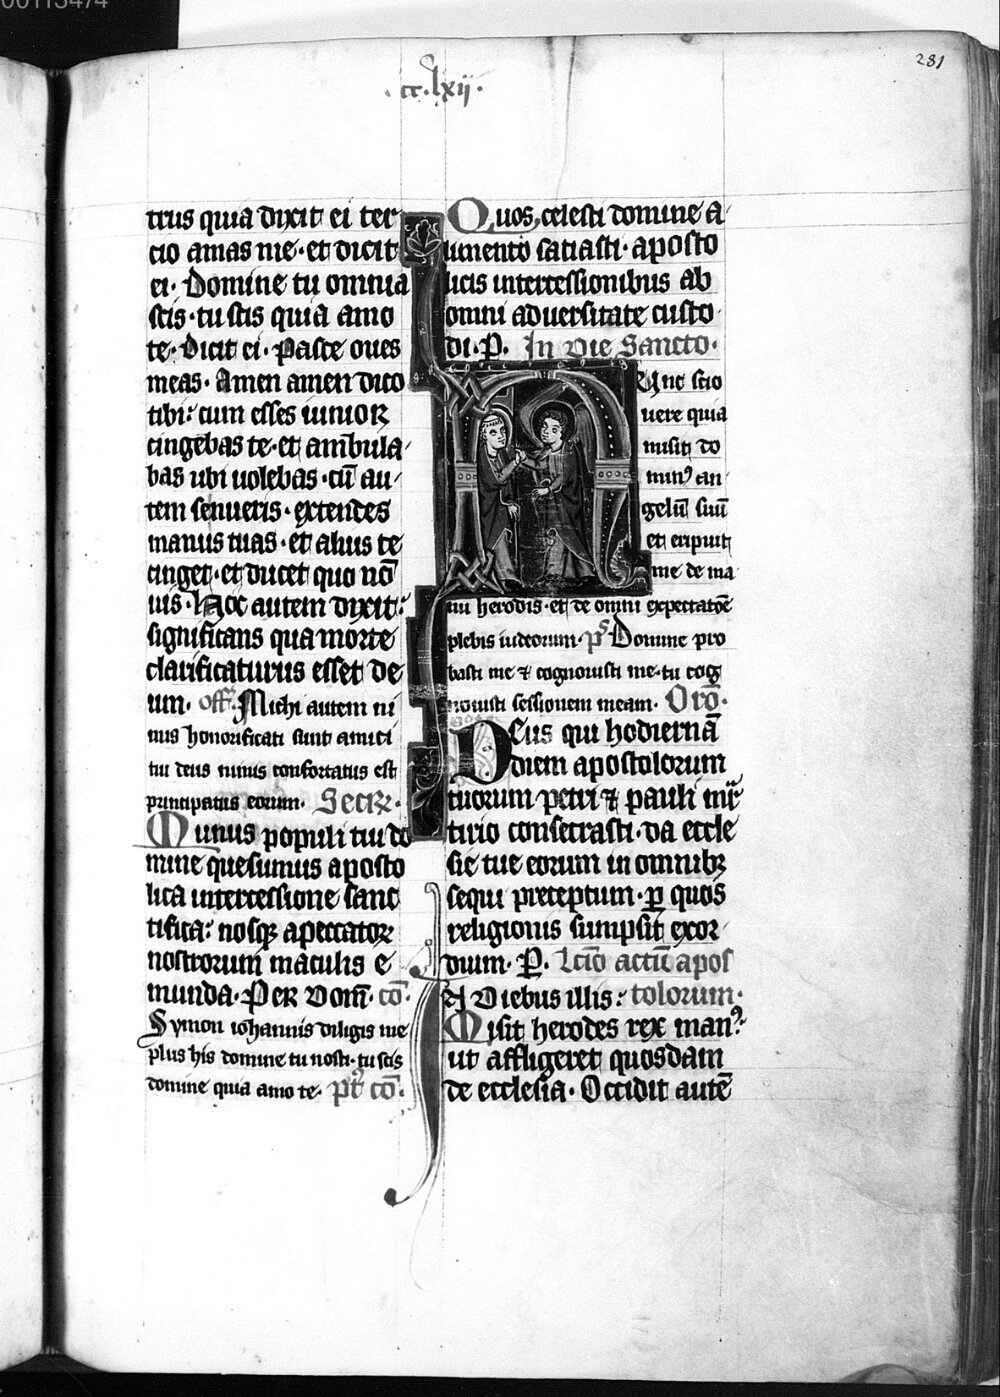 00113474
281
.cc.lxij.
trus quia dixit ei ter
cio amas me·et dicit
ei· Domine tu omnia
scis·tu scis quia amo
te· Dicit ei· Pasce oues
meas· Amen amen dico
tibi: cum esses iunior
cingebas te·et ambula
bas ubi uolebas·cū au
tem senueris·extendes
manus tuas·et alius te
cinget·et ducet quo nō
uis· Hoc autem dixit:
significans qua morte
clarificaturus esset de
um· off. Michi autem ni
mis honorificati sunt amici
tui deus nimis confortatus est
principatus eorum· Secr.
Munus populi tui do
mine quesumus aposto
lica intercessione sanc
tifica: nosqꝫ a peccatoꝝ
nostrorum maculis e
munda· Per Dom̄· cō·
Symon iohannis diligis me
plus his domine tu nosti·tu scis
domine quia amo te· pt̄ cō·
Quos celesti domine a
limento satiasti· aposto
licis intercessionibus ab
omni aduersitate custo
di· P. In die Sancto·
Nunc scio
uere quia
misit do
minꝰ an
gelū suū
et eripuit
me de ma
nu herodis·et de omni expectatōe
plebis iudeorum· ps Domine pro
basti me ⁊ cognouisti me·tu cog
nouisti sessionem meam· Orō·
Deus qui hodiernā
diem apostolorum
tuorum petri ⁊ pauli mr̄
tirio consecrasti·da eccle
sie tue eorum in omnibꝫ
sequi preceptum·ꝑ quos
religionis sumpsit exor
dium· P. Lcīo actuū apos
In Diebus illis: tolorum·
Misit herodes rex manꝰ:
ut affligeret quosdam
de ecclesia· Occidit autē